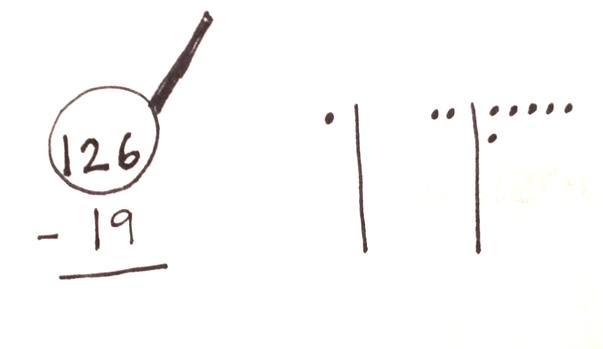 126
- 19